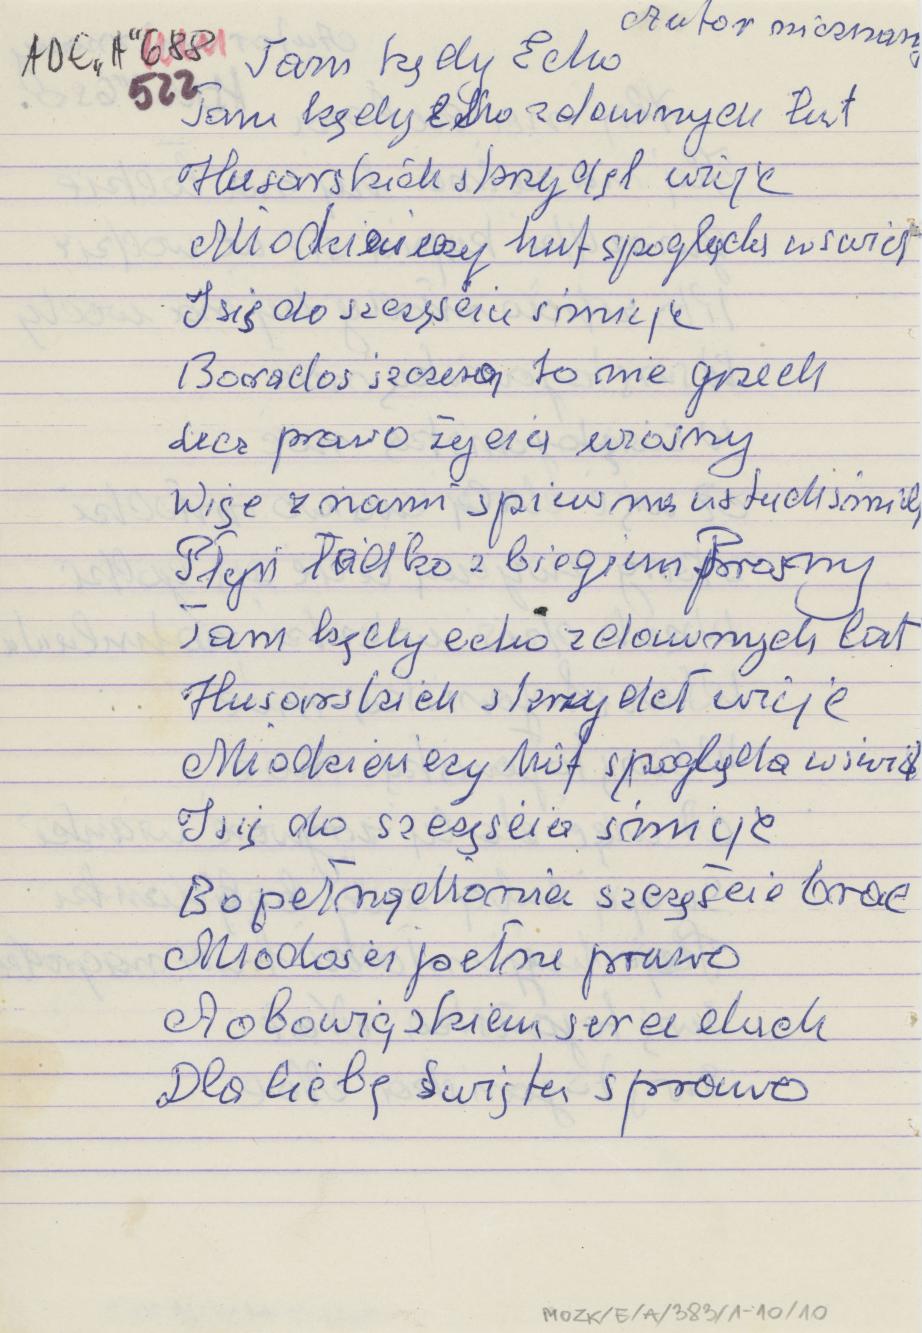 Autor nieznany
ADE „A" 688
522
Tam kędy Echo
Tam kędy Echo z dawnych lat
Husarskich skrzydeł wieje
Młodzieńczy huf spogląda w świat
I się do szczęścia śmieje
Bo radość szczera to nie grzech
Lecz prawo życia wiosny
Więc z nami śpiew na ustach śmiech
Płyń łódko z biegiem Prosny
Tam kędy echo z dawnych lat
Husarskich skrzydeł wieje
Młodzieńczy huf spogląda w świat
I się do szczęścia śmieje
Bo pełną dłonią szczęście brać
Młodości pełne prawo
A obowiązkiem serca
Dla ciebę święta sprawo
MOZK/E/A/383/1-10/10